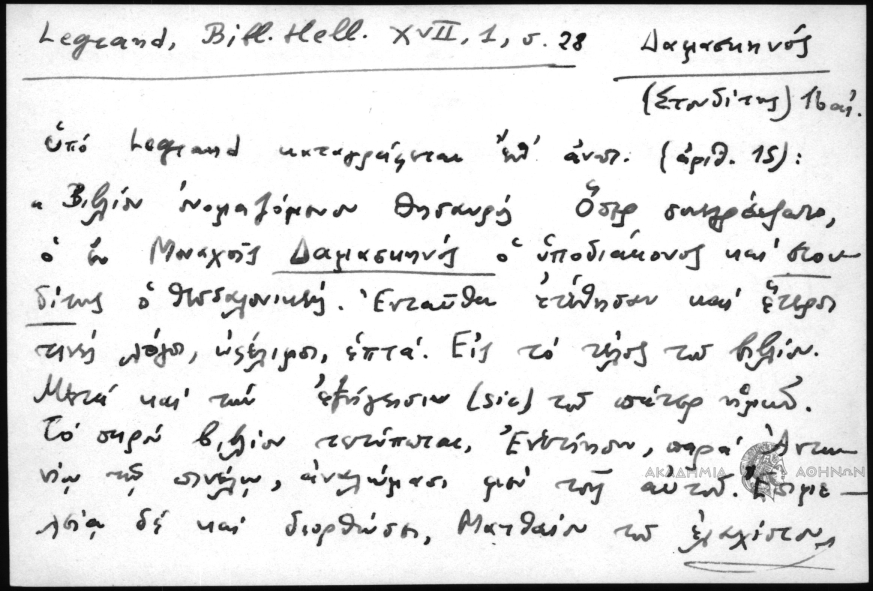 Legrand, Bibl. Hell. XVII, 1, σ. 28 Δαμασκηνός
(Στουδίτης) 16 αἰ.
ὑπό Legrand καταγράφεται ἐπ' ἀνωτ. (ἀριθ. 15):
« Βιβλίον ὀνομαζόμενον θησαυρός Ὅπερ συνεγράψατο,
ὁ ἐν Μοναχοῖς Δαμασκηνός ὁ ὑποδιάκονος καί στου-
δίτης ὁ θεσσαλονικεύς. Ἐνταῦθα ἐτέθησαν καί ἕτεροι
τινές λόγοι, ὠφέλιμοι, ἑπτά. Εἰς τό τέλος τοῦ βιβλίου.
Μετά καί τήν ἐξήγησιν (sic) τοῦ πάτερ ἡμῶν.
Τό παρόν βιβλίον τετύπωται, Ἐνετίησιν, παρά Ἀντω-
νίῳ τῷ πινέλῳ, ἀναλώμασι μέν τοῖς αὐτοῦ. Ἐπιμε-
λείᾳ δέ καί διορθώσει, Ματθαίου τοῦ ἐλαχίστου
ΑΚΑΔΗΜΙΑ ΑΘΗΝΩΝ